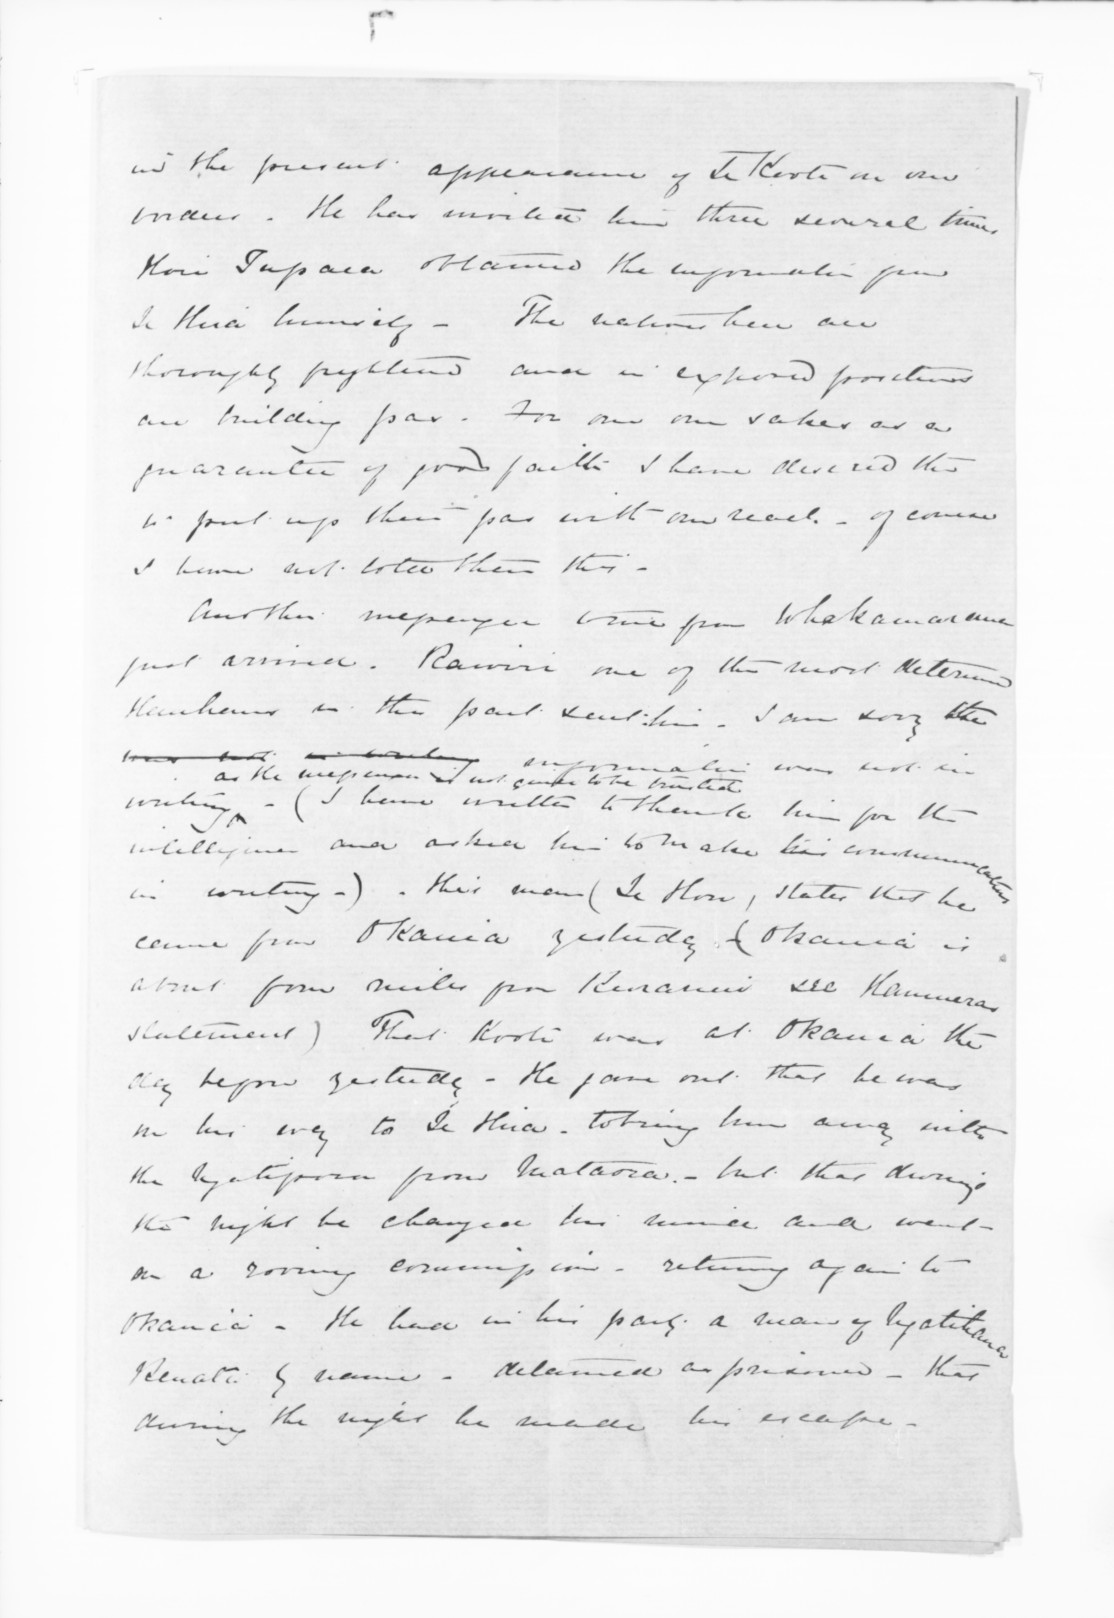 in the present appearance of Te Kooti on our
borders. He has invited him three several times
Hori Tupaea obtained the information from
Te Hira himself - The natives here are
thoroughly frightened and in exposed positions
are building pas. For our own sakes as a
guarantee of good faith I have desired the
to put up their pas with our reach - of course
I have not told them this -
Another messenger from Whakamarama
just arrived. Rawiri one of the most determined
Hauhaus in this part sent him - I am sorry the
was not in writing information was not in
as the messenger is not to be trusted
writing - (I have written to thank him for the
intelligence and asked him to make his communications
in writing -) . this man (Te Hou) states that he
came from Okauia yesterday - (Okauia is
about four miles from see Hammeras
statement) That Kooti was at Okauia the
day before yesterday - He gave out that he was
on his way to Te Hira - to bring him away with
the Ngatiporou from Mataora. - but that during
the night he changed his mind and went
on a roving commission - returning again to
Okauia - He had in his party a man of
Renata by name - detained as prisoner - that
during the night he made his escape -